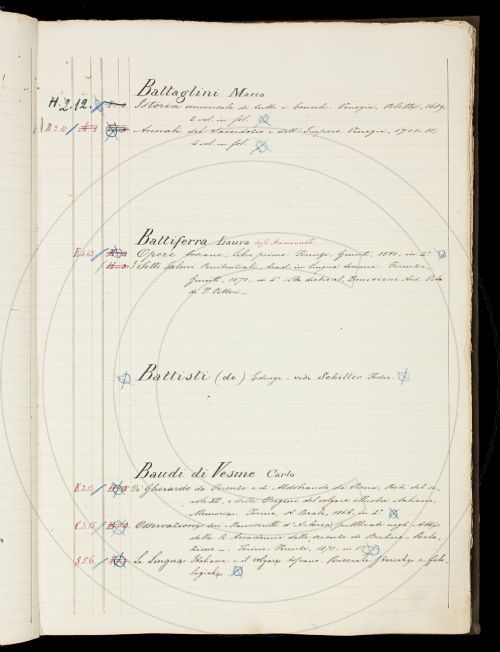 Battaglini Marco
H.2.12. Istoria universale di tutti i Concili. Venezia, 1689
2 vol. in fol.
B.2.10. Annali del Sacerdozio e dell'Impero. Venezia, 1701-11.
4 vol. in fol.
Battiferra Laura degli Ammannati
Opere toscane, libro primo. Firenze, Giunti, 1560, in 4°
I Sette Salmi Penitenziali, trad. in lingua toscana. Firenze,
Giunti, 1570, in 4°
di P. Vettori.
Battisti (de) Edvige - vedi Schiller Feder.
Baudi di Vesme Carlo
K.2.12. Di Gherardo da Firenze e di Aldobrando da Siena, Poeti del se-
colo XII, e delle Origini del volgare illustre italiano;
Memoria. Torino, St. Reale, 1866, in 4°
C.3.15. Osservazioni sui Manoscritti d'Arborea pubblicati negli Atti
della R. Accademia delle scienze di Berlino. Rela-
zione -. Torino, 1870, in
S.5.6. La Lingua Italiana e il volgare toscano. Ricerche Storiche e filo-
logiche